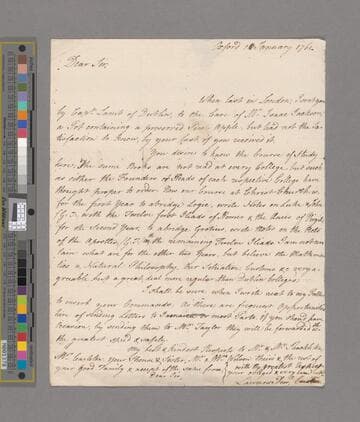 Oxford 18 January 1761
Dear Sir,
When last in London, I wrote you
by Capt. Lamit of Dublin, to the Care of Mr. Isaac
a Pot containing a preserved Pine Apple, but had not the Sa-
tisfaction to know, by your last if you received it.
You desire to know the Course of Study
here. The same Books are not read at every College, but such
as either the Founders or Heads of each respective College have
thought proper to order. Now our Course at Christ Church is
for the first Year to abridge Logic, write Notes on Luke & John
with the Twelve first Iliads of Homer & the
for the Second Year, to abridge Grotius, write Notes on the Acts
of the Apostles, the remaining Twelve Iliads. I am not cer-
tain what are for the other two Years, but believe the Mathema
tics & Natural Philosophy. Our Situation Customs &c very a-
greeable but a great deal more regular than Dublin College.
I shall be sure when I write next to my Father
to record your Commands. As there are frequent Opportunities
here of sending Letters to Jamaica or most Parts, if you should have
occasion, by sending them to Mr. Taylor they will be forwarded with the
greatest speed & safety.
My best & kindest Respects to Mr. & Mrs.
Mr. your Spouse & Sister, Mr. & Mrs. Wilson & the rest of
your good Family & accept of the same from
with the greatest Respect
Dear Sir,
your obliged & very humble